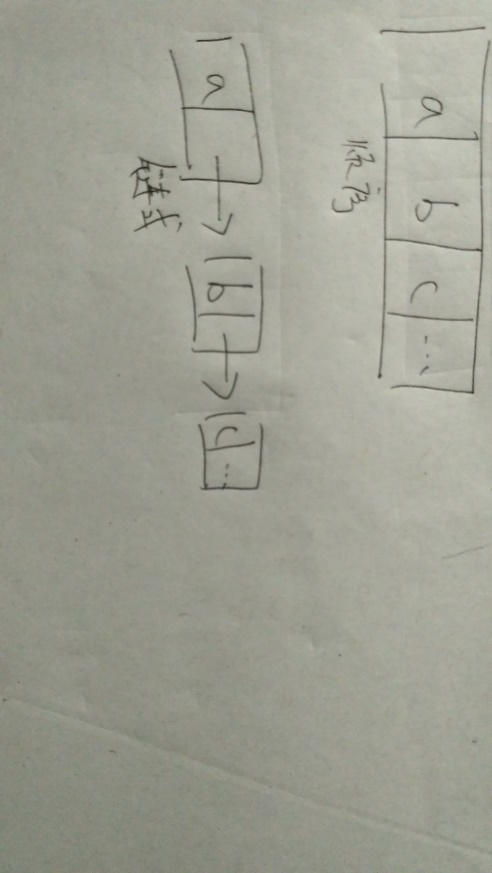 a b c ...
顺序
a b c ...
链式